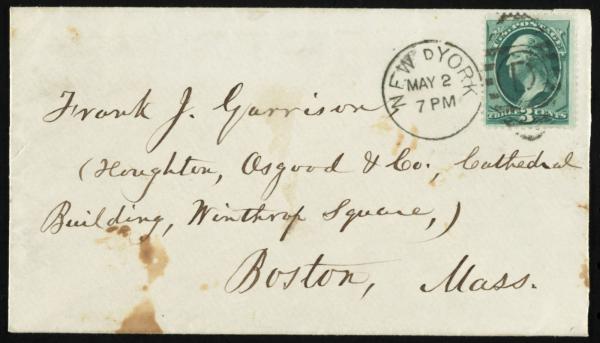 U.S. POSTAGE
NEW YORK
D
MAY 2
7 PM
THREE 3 CENTS
Frank J. Garrison
(Houghton, Osgood & Co., Cathedral
Building, Winthrop Square,)
Boston, Mass.